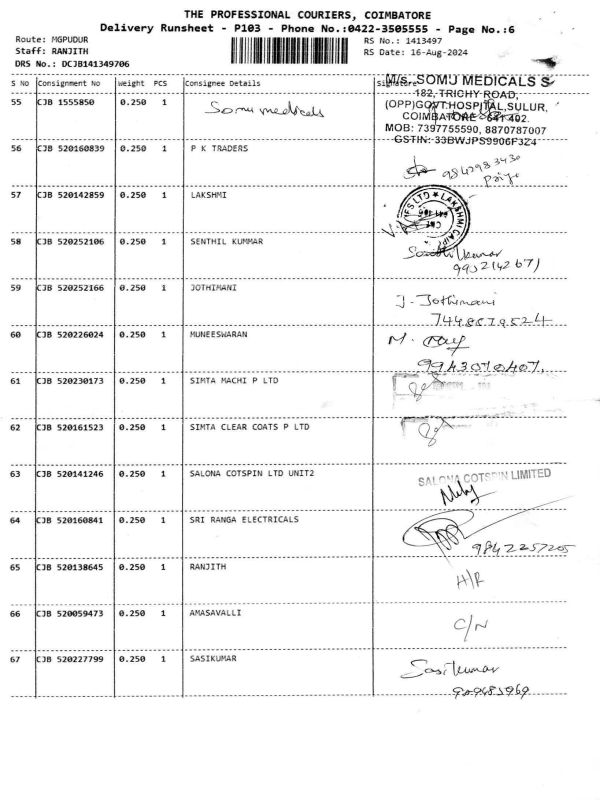 THE PROFESSIONAL COURIERS, COIMBATORE
Delivery Runsheet - P103 - Phone No.:0422-3505555 - Page No.:6
Route: MGPUDUR
RS No.: 1413497
Staff: RANJITH
RS Date: 16-Aug-2024
DRS No.: DCJB141349706
S No Consignment No Weight PCS Consignee Details Signature
M/s. SOMU MEDICALS S
182, TRICHY ROAD,
(OPP)GOVT.HOSPITAL,SULUR,
COIMBATORE - 641 402.
MOB: 7397755590, 8870787007
GSTIN: 33BWJPS9906F3Z4
55 CJB 1555850 0.250 1 Somu medicals
56 CJB 520160839 0.250 1 P K TRADERS
9842983430
Priya
57 CJB 520142859 0.250 1 LAKSHMI
58 CJB 520252106 0.250 1 SENTHIL KUMMAR
Senthilkumar
9952142671
59 CJB 520252166 0.250 1 JOTHIMANI
J. Jothimani
7448879524
60 CJB 520226024 0.250 1 MUNEESWARAN
M.
9943070407.
61 CJB 520230173 0.250 1 SIMTA MACHI P LTD
62 CJB 520161523 0.250 1 SIMTA CLEAR COATS P LTD
63 CJB 520141246 0.250 1 SALONA COTSPIN LTD UNIT2
SALONA COTSPIN LIMITED
64 CJB 520160841 0.250 1 SRI RANGA ELECTRICALS
9842257205
65 CJB 520138645 0.250 1 RANJITH
H/R
66 CJB 520059473 0.250 1 AMASAVALLI
C/N
67 CJB 520227799 0.250 1 SASIKUMAR
Sasikumar